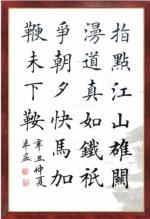 指點江山雄關
漫道真如鐵祇
爭朝夕快馬加
鞭未下鞍
辛丑仲夏